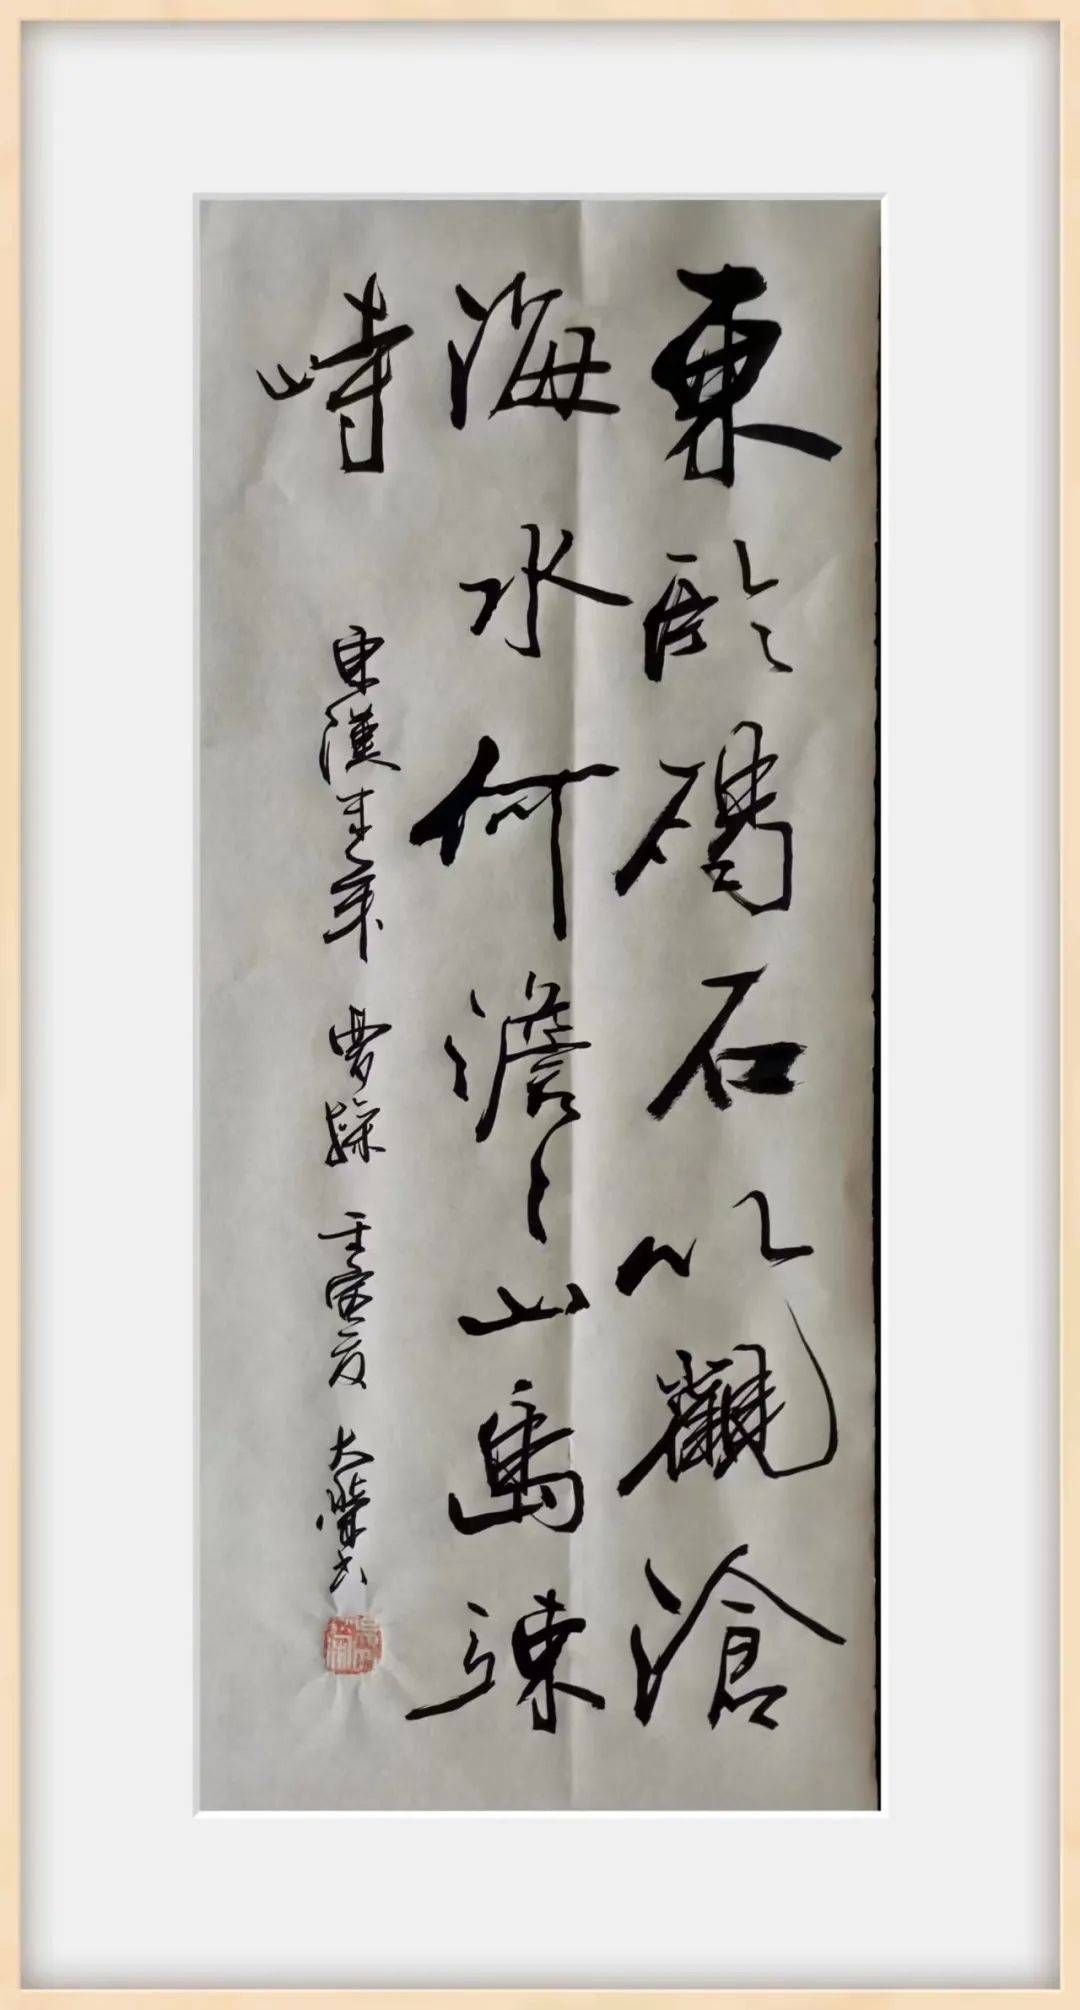 東臨碣石以觀滄
海水何澹々山島竦
峙
東漢末年 曹操 壬寅夏 大